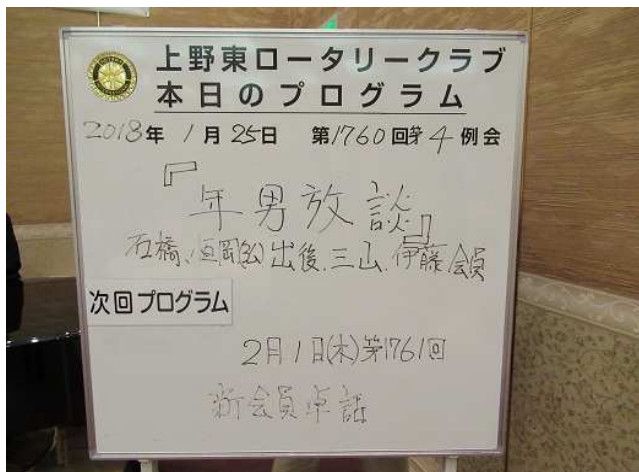 上野東ロータリークラブ
本日のプログラム
2018年 1月25日 第1760回第4例会
『年男放談』
石橋、恒岡(弘)出後、三山、伊藤会員
次回プログラム
2月1日(木)第1761回
新会員卓話